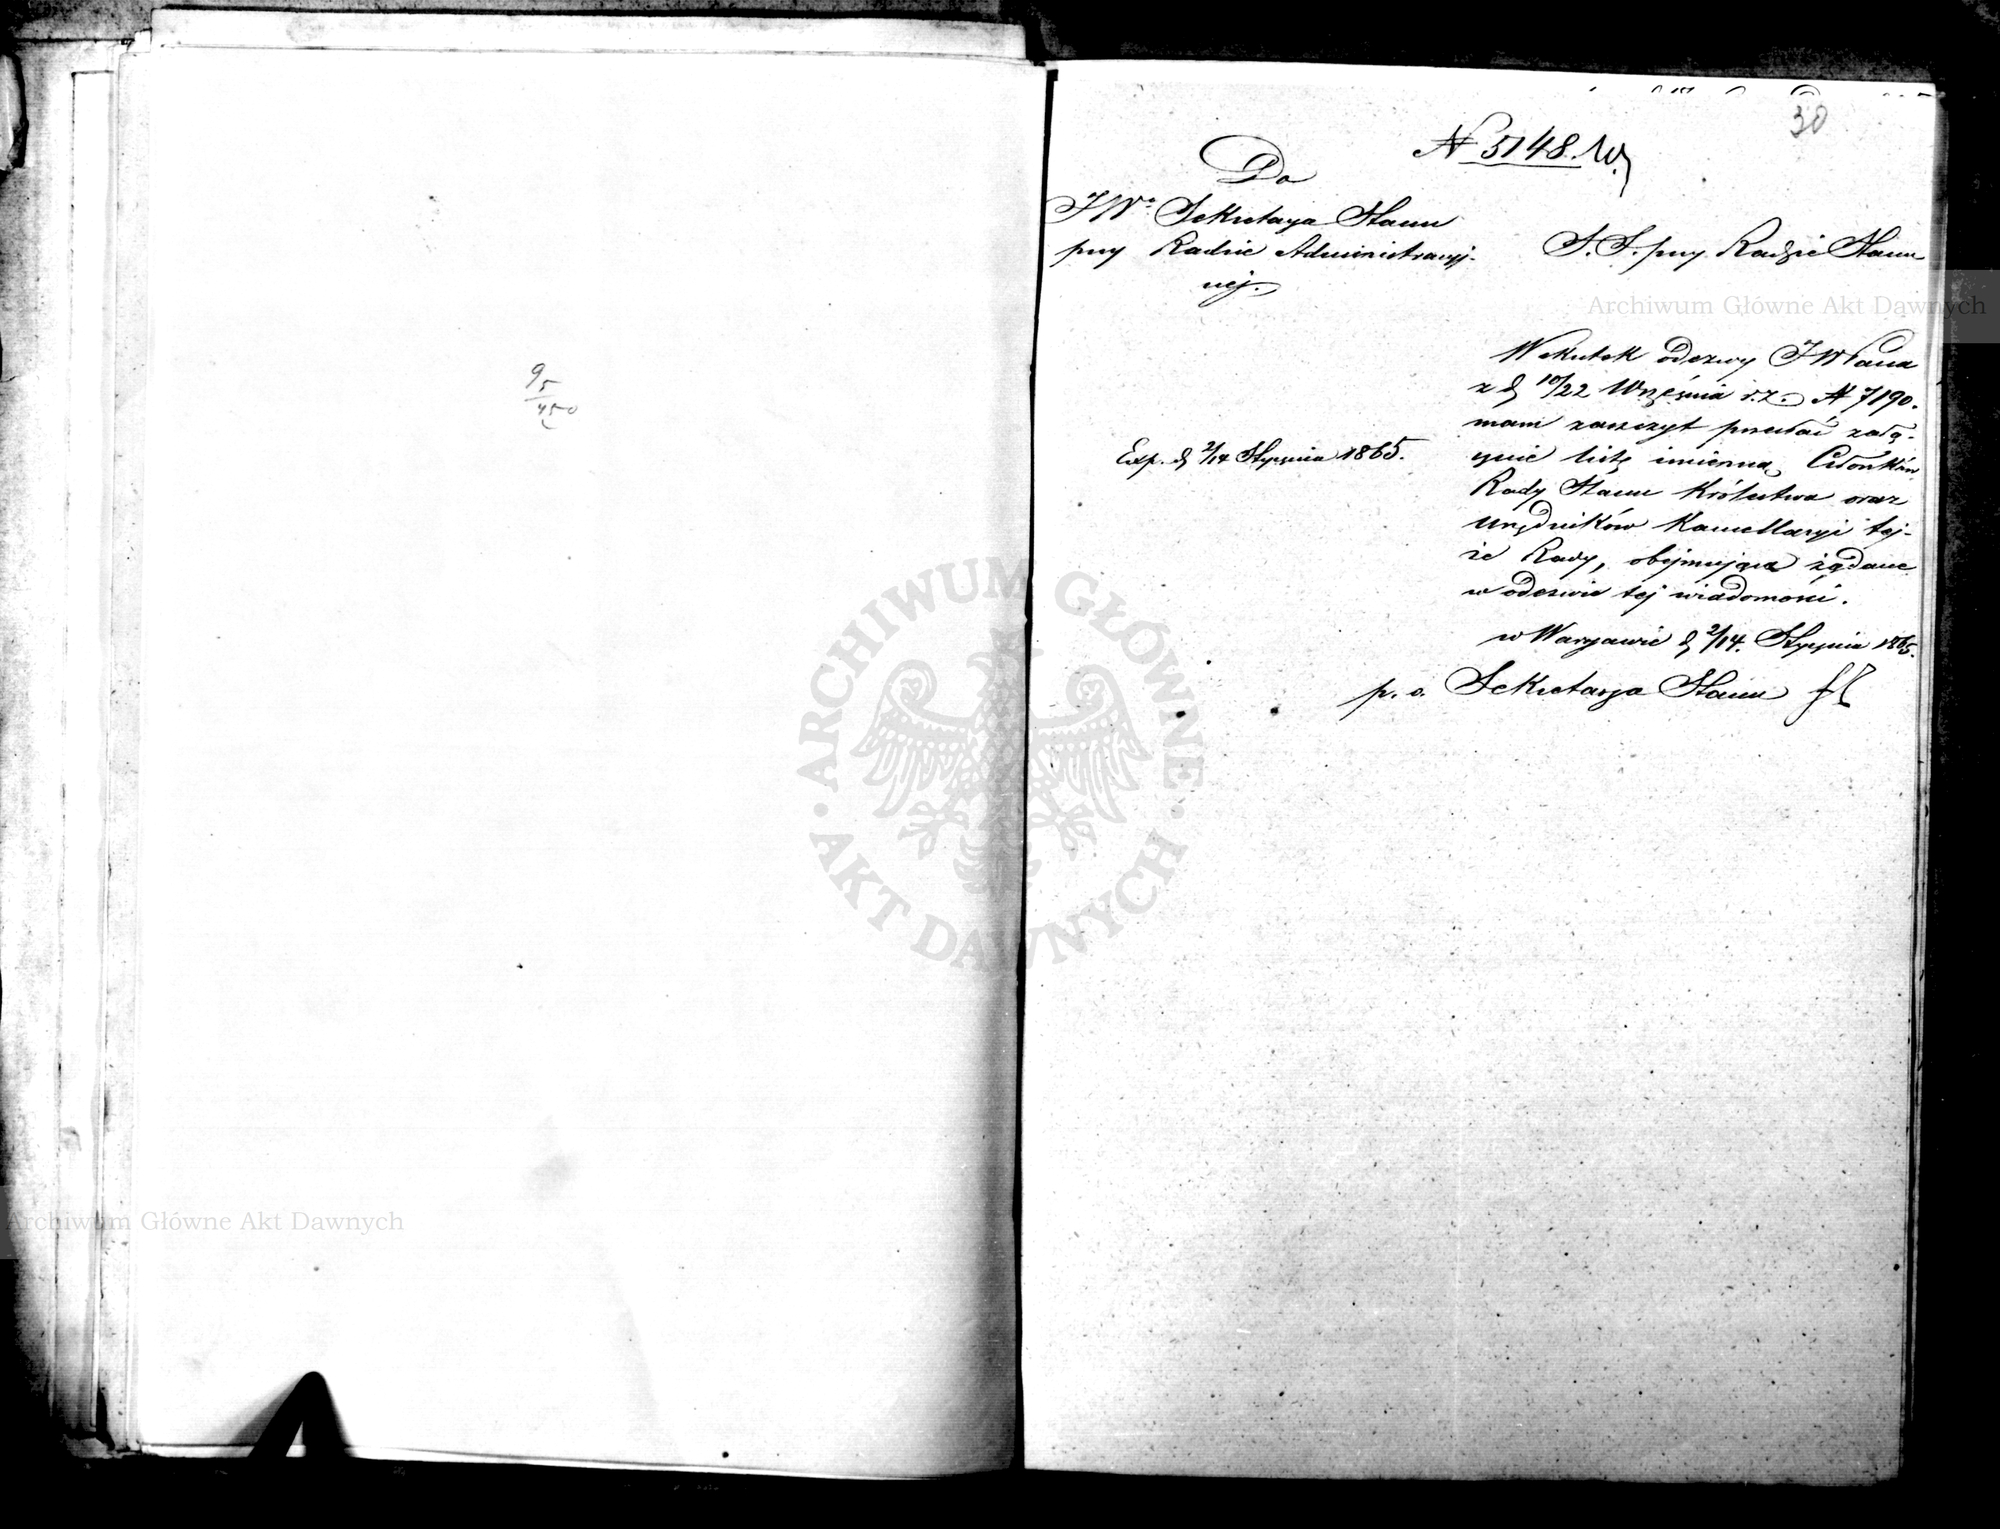 9
5
450
30
N 5148. W.
Do
JWo Sekretarza Stanu
przy Radzie Administracyj-
nej.
S. S. przy Radzie Stanu
Archiwum Główne Akt Dawnych
Wskutek odezwy JWPana
z d. 10/22 Września r.z. N 7190.
mam zaszczyt przesłać załą-
cznie listę imienną Członków
Rady Stanu Królestwa oraz
Urzędników Kancellaryi tej-
że Rady, obejmującą żądane
w odezwie tej wiadomości.
Exp. d. 2/14 Stycznia 1865.
w Warszawie d. 2/14. Stycznia 1865.
p. o. Sekretarza Stanu
ARCHIWUM GŁÓWNE AKT DAWNYCH
Archiwum Główne Akt Dawnych